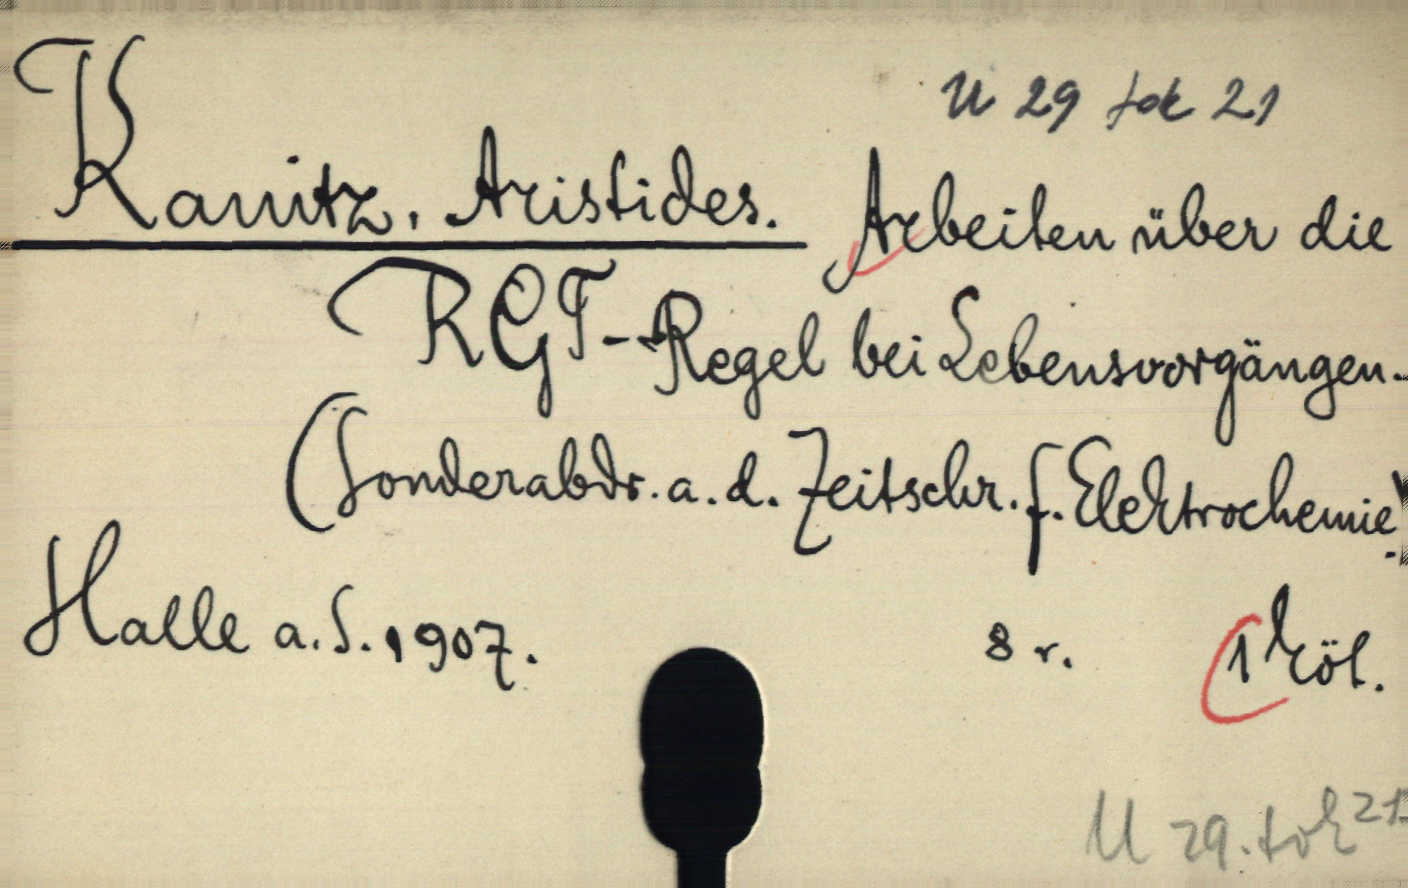 U 29 tok 21
Kanitz, Aristides. Arbeiten über die
RGT-Regel bei Lebensvorgängen.
(Sonderabdr. a. d. Zeitschr. f. Elektrochemie).
Halle a. S. 1907. 8 r. 1 köt.
U 29. tok 21